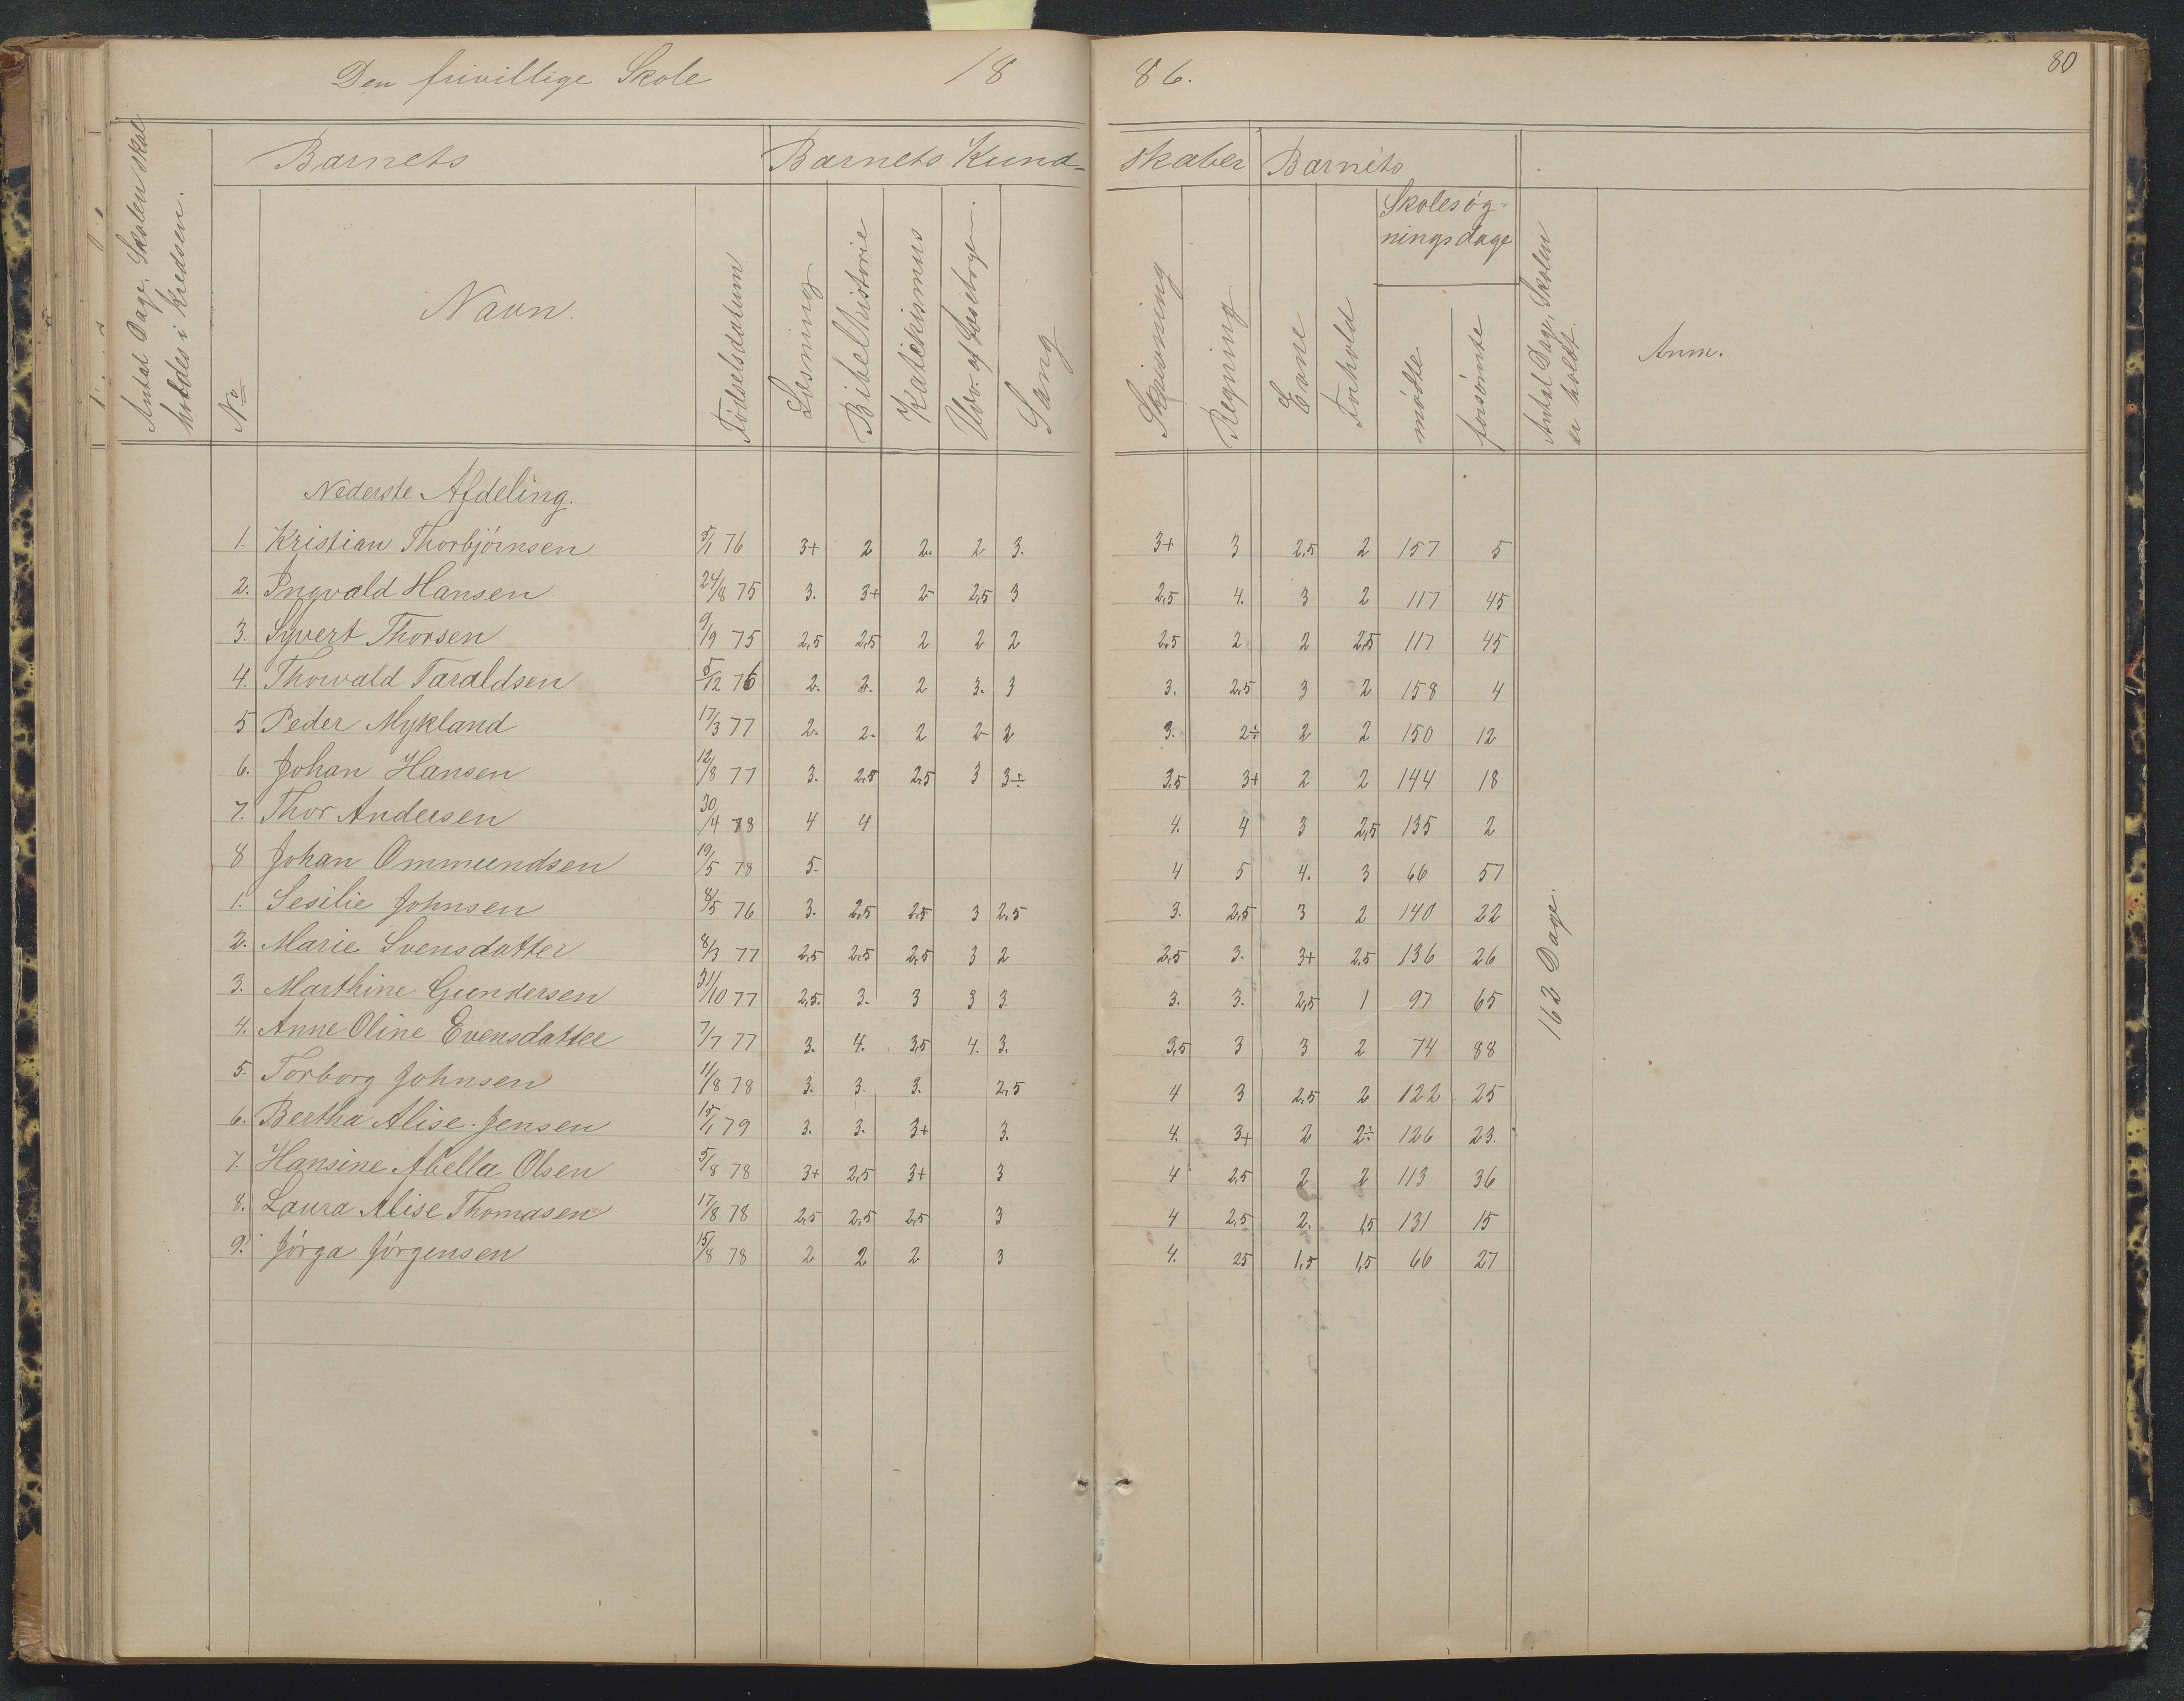 Den frivillige Skole 18 86. 80
Barnets Barnets Kund- skaber Barnets
Antal Dage, Skolen skal holdes i Kredsen.
No
Navn.
Fødselsdatum
Læsning
Bibelhistorie
Katekismus
Udv. af Læsebogen.
Sang
Skrivning
Regning
Evne
Forhold
Skolesøg-
ningsdage
mødte
forsømte
Antal Dage, Skolen er holdt.
Anm.
Nederste Afdeling.
1. Kristian Thorbjørnsen 5/1 76 3+ 2 2. 2 3. 3+ 3 2,5 2 157 5
2. Ingvald Hansen 24/8 75 3. 3+ 2- 2,5 3 2,5 4. 3 2 117 45
3. Syvert Thorsen 9/9 75 2,5 2,5 2 2 2 2,5 2 2 2,5 117 45
4. Thorvald Taraldsen 5/12 76 2. 2. 2 3. 3 3. 2,5 3 2 158 4
5 Peder Mykland 17/3 77 2. 2. 2 2- 2 3. 2÷ 2 2 150 12
6. Johan Hansen 12/8 77 3. 2,5 2,5 3 3÷ 3,5 3+ 2 2 144 18
7. Thor Andersen 30/4 78 4 4 4. 4 3 2,5 135 2
8 Johan Ommundsen 19/5 78 5. 4 5 4. 3 66 57
1. Sesilie Johnsen 8/5 76 3. 2,5 2,5 3 2,5 3. 2,5 3 2 140 22
2. Marie Svensdatter 8/3 77 2,5 2,5 2,5 3 2 2,5 3. 3+ 2,5 136 26
3. Marthine Gundersen 31/10 77 2,5. 3. 3 3 3. 3. 3. 2,5 1 97 65
4. Anne Oline Evensdatter 7/7 77 3. 4. 3,5 4. 3. 3,5 3 3 2 74 88
5. Torborg Johnsen 11/8 78 3. 3. 3. 2,5 4 3 2,5 2 122 25
6. Bertha Alise Jensen 15/1 79 3. 3. 3+ 3. 4. 3+ 2 2÷ 126 23.
7. Hansine Abella Olsen 5/8 78 3+ 2,5 3+ 3 4 2,5 2 2 113 36
8. Laura Alise Thomasen 17/8 78 2,5 2,5 2,5 3 4 2,5 2. 1,5 131 15
9. Jørga Jørgensen 15/8 78 2 2 2 3 4. 25 1,5 1,5 66 27
162 Dage.